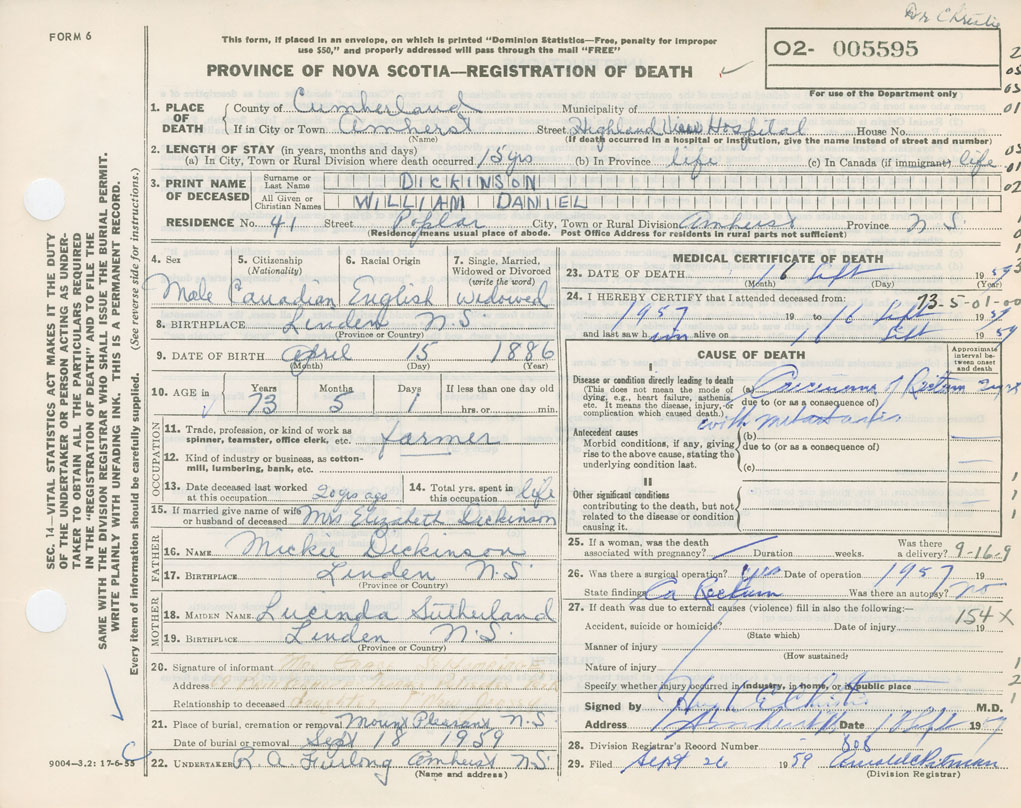 Dr Christie
FORM 6
This form, if placed in an envelope, on which is printed "Dominion Statistics—Free, penalty for improper
use $50," and properly addressed will pass through the mail "FREE"
PROVINCE OF NOVA SCOTIA—REGISTRATION OF DEATH
02- 005595
For use of the Department only
1. PLACE OF DEATH County of Cumberland Municipality of
If in City or Town Amherst Street Highland View Hospital House No.
(Name) (If death occurred in a hospital or institution, give the name instead of street and number)
2. LENGTH OF STAY (in years, months and days)
(a) In City, Town or Rural Division where death occurred 15 yrs (b) In Province life (c) In Canada (if immigrant) life
3. PRINT NAME OF DECEASED Surname or Last Name DICKINSON
All Given or Christian Names WILLIAM DANIEL
RESIDENCE No. 41 Street Poplar City, Town or Rural Division Amherst Province N.S.
(Residence means usual place of abode. Post Office Address for residents in rural parts not sufficient)
SEC. 14—VITAL STATISTICS ACT MAKES IT THE DUTY
OF THE UNDERTAKER OR PERSON ACTING AS UNDER-
TAKER TO OBTAIN ALL THE PARTICULARS REQUIRED
IN THE "REGISTRATION OF DEATH" AND TO FILE THE
SAME WITH THE DIVISION REGISTRAR WHO SHALL ISSUE THE BURIAL PERMIT.
WRITE PLAINLY WITH UNFADING INK. THIS IS A PERMANENT RECORD.
Every item of information should be carefully supplied. (See reverse side for instructions.)
4. Sex 5. Citizenship (Nationality) 6. Racial Origin 7. Single, Married, Widowed or Divorced (write the word)
Male Canadian English widowed
8. BIRTHPLACE Linden N.S.
(Province or Country)
9. DATE OF BIRTH April 15 1886
(Month) (Day) (Year)
10. AGE in Years 73 Months 5 Days 1 If less than one day old hrs. or min.
OCCUPATION
11. Trade, profession, or kind of work as spinner, teamster, office clerk, etc. farmer
12. Kind of industry or business, as cotton-mill, lumbering, bank, etc.
13. Date deceased last worked at this occupation 20 yrs ago 14. Total yrs. spent in this occupation life
15. If married give name of wife or husband of deceased Mrs Elizabeth Dickinson
FATHER
16. NAME Mickie Dickinson
17. BIRTHPLACE Linden N.S.
(Province or Country)
MOTHER
18. MAIDEN NAME Lucinda Sutherland
19. BIRTHPLACE Linden N.S.
(Province or Country)
20. Signature of informant Mrs
Address 19
Relationship to deceased daughter
21. Place of burial, cremation or removal Mount Pleasant N.S.
Date of burial or removal Sept 18 1959
22. UNDERTAKER R. A. Furlong Amherst N.S.
(Name and address)
9004—3.2: 17-6-55
MEDICAL CERTIFICATE OF DEATH
23. DATE OF DEATH 16 Sept 1959
(Month) (Day) (Year)
24. I HEREBY CERTIFY that I attended deceased from: 73-5-01-00
1957 19 to 16 Sept 1959
and last saw him alive on 16 Sept 1959
CAUSE OF DEATH
Approximate interval between onset and death
I
Disease or condition directly leading to death (a) Carcinoma of Rectum 2 yrs
(This does not mean the mode of dying, e.g., heart failure, asthenia, etc. It means the disease, injury, or complication which caused death.) due to (or as a consequence of)
with metastasis
Antecedent causes (b)
Morbid conditions, if any, giving rise to the above cause, stating the underlying condition last. due to (or as a consequence of)
(c)
II
Other significant conditions contributing to the death, but not related to the disease or condition causing it.
25. If a woman, was the death associated with pregnancy? Duration weeks. Was there a delivery? 9-16-9
26. Was there a surgical operation? yes Date of operation 1957 19
State findings Ca Rectum Was there an autopsy? no
27. If death was due to external causes (violence) fill in also the following:— 154X
Accident, suicide or homicide? Date of injury 19
(State which)
Manner of injury
(How sustained)
Nature of injury
Specify whether injury occurred in industry, in home, or a public place
Signed by Hugh E Christie M.D.
Address Amherst Date 18 Sept 1959
28. Division Registrar's Record Number 808
29. Filed Sept 26 1959
(Division Registrar)